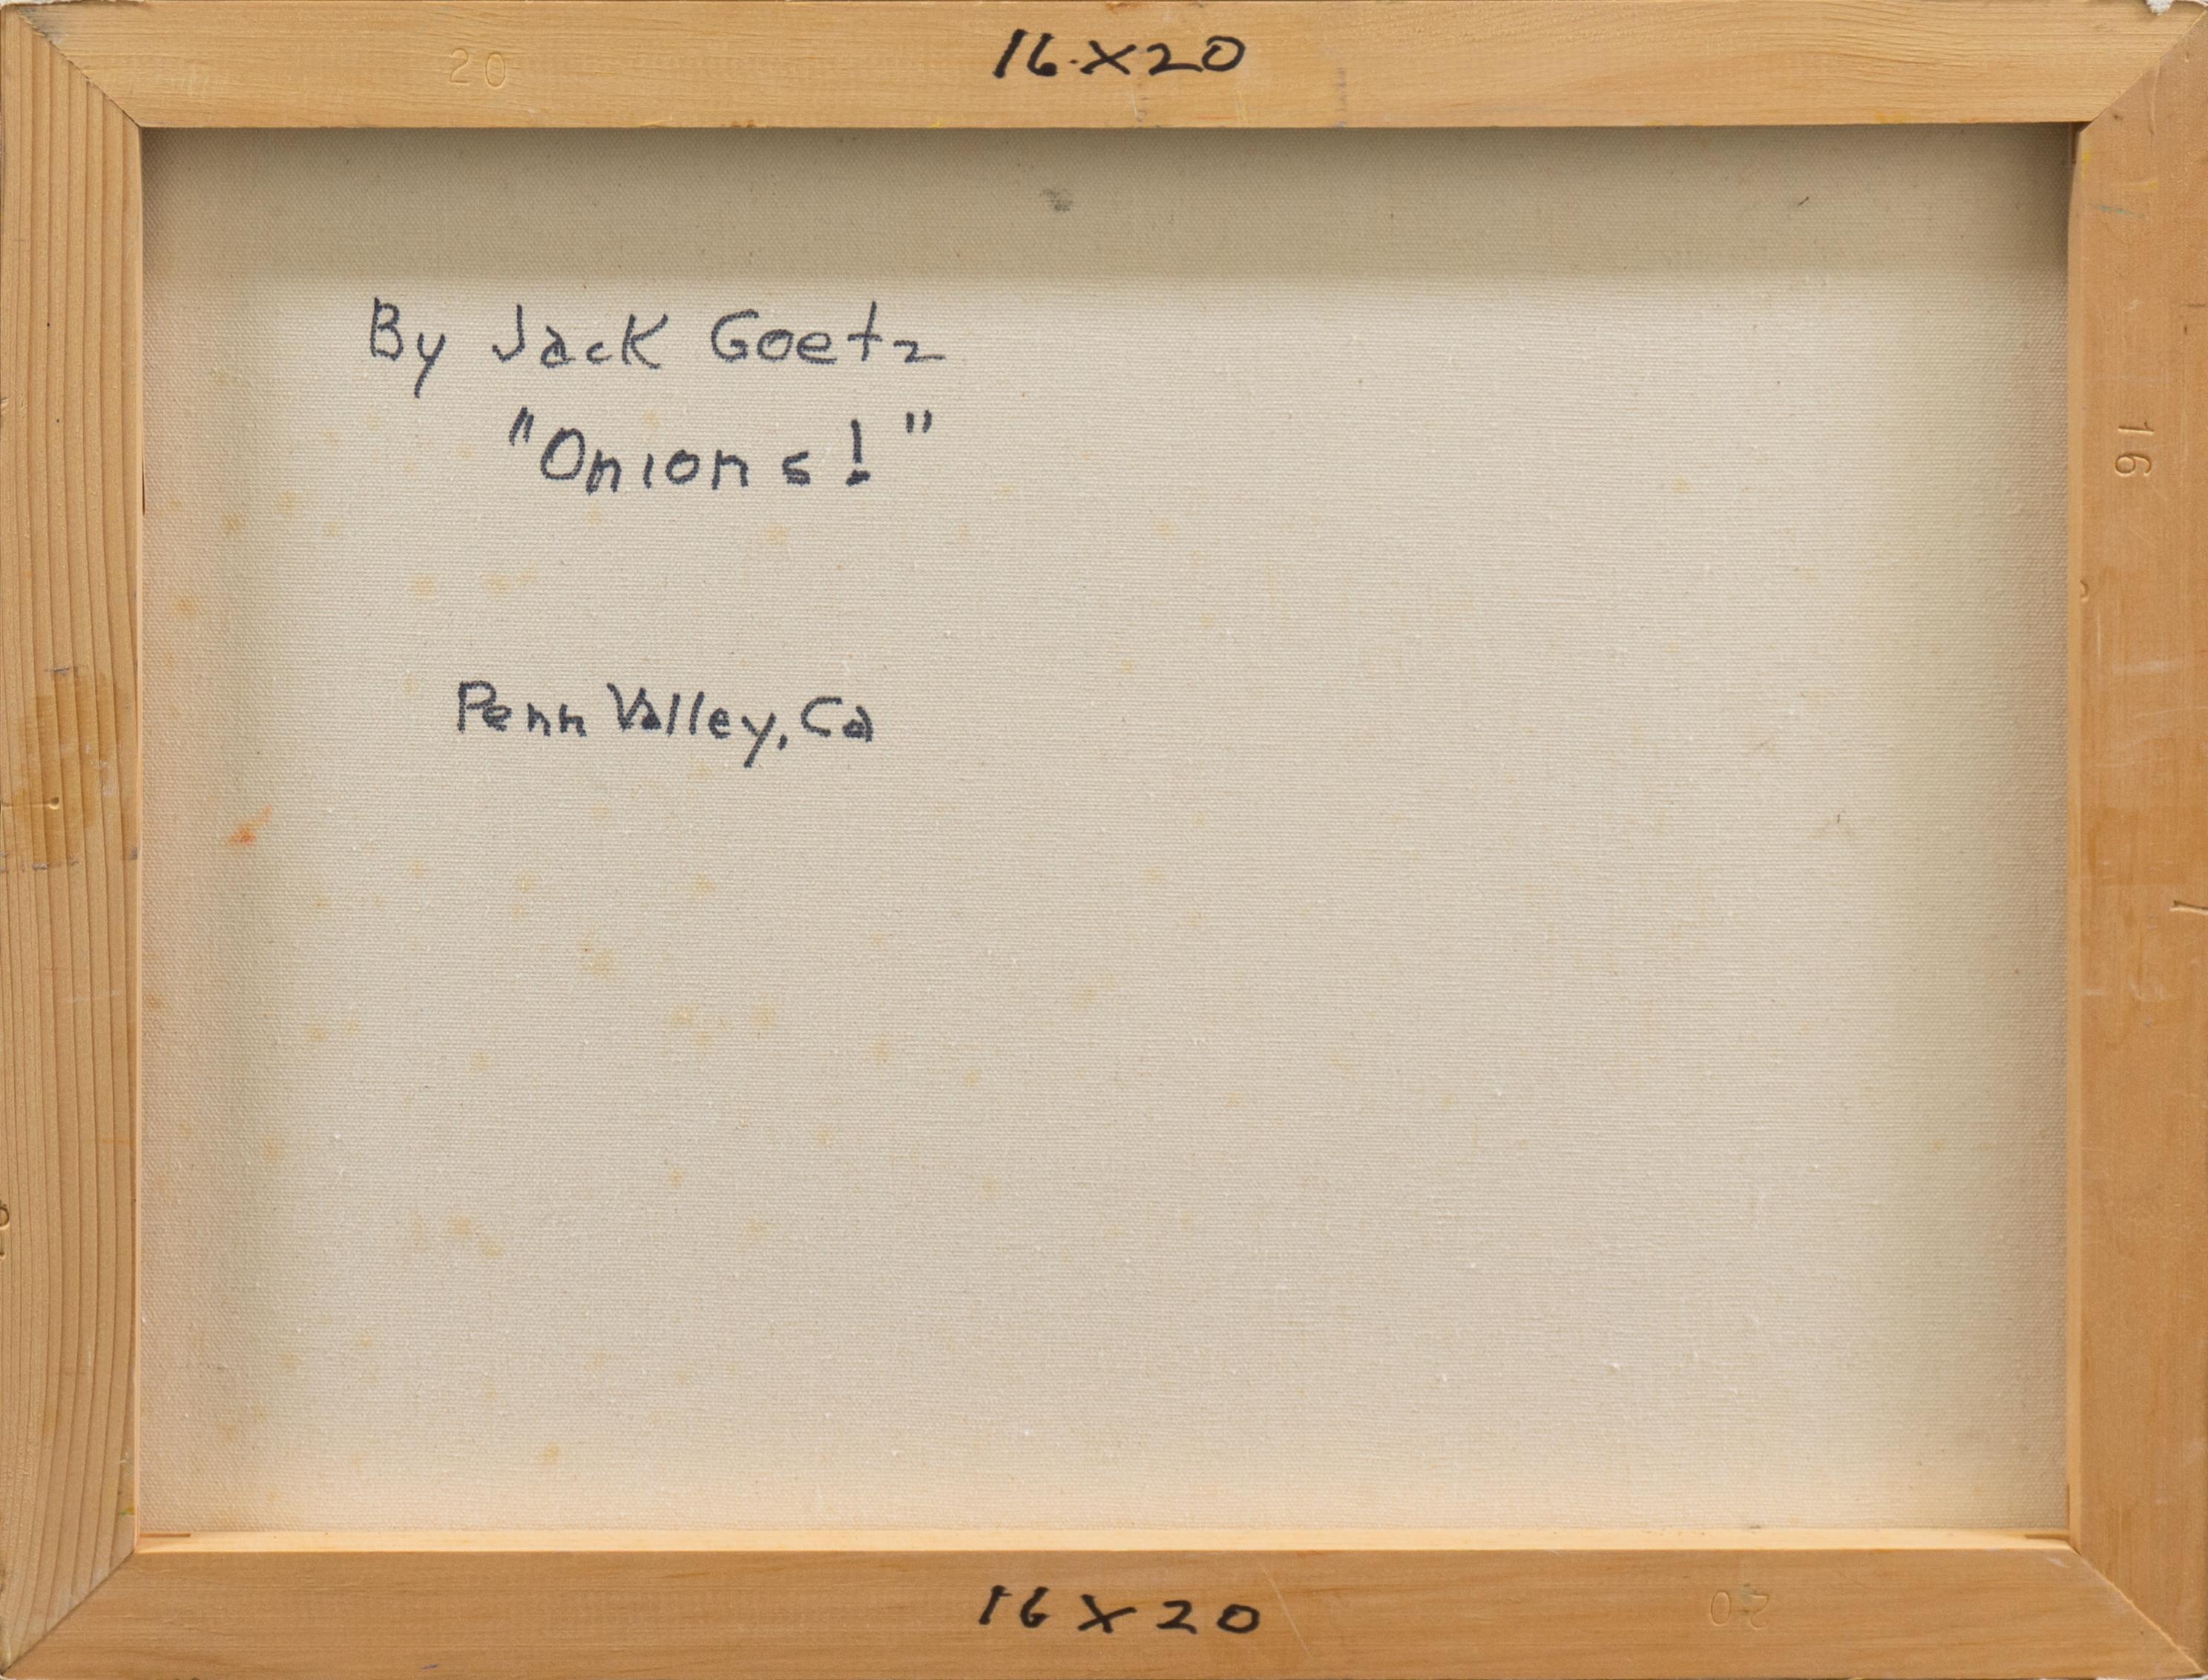 20
16x20
By Jack Goetz
"Onions!"
16
Penn Valley, Ca
16x20
20